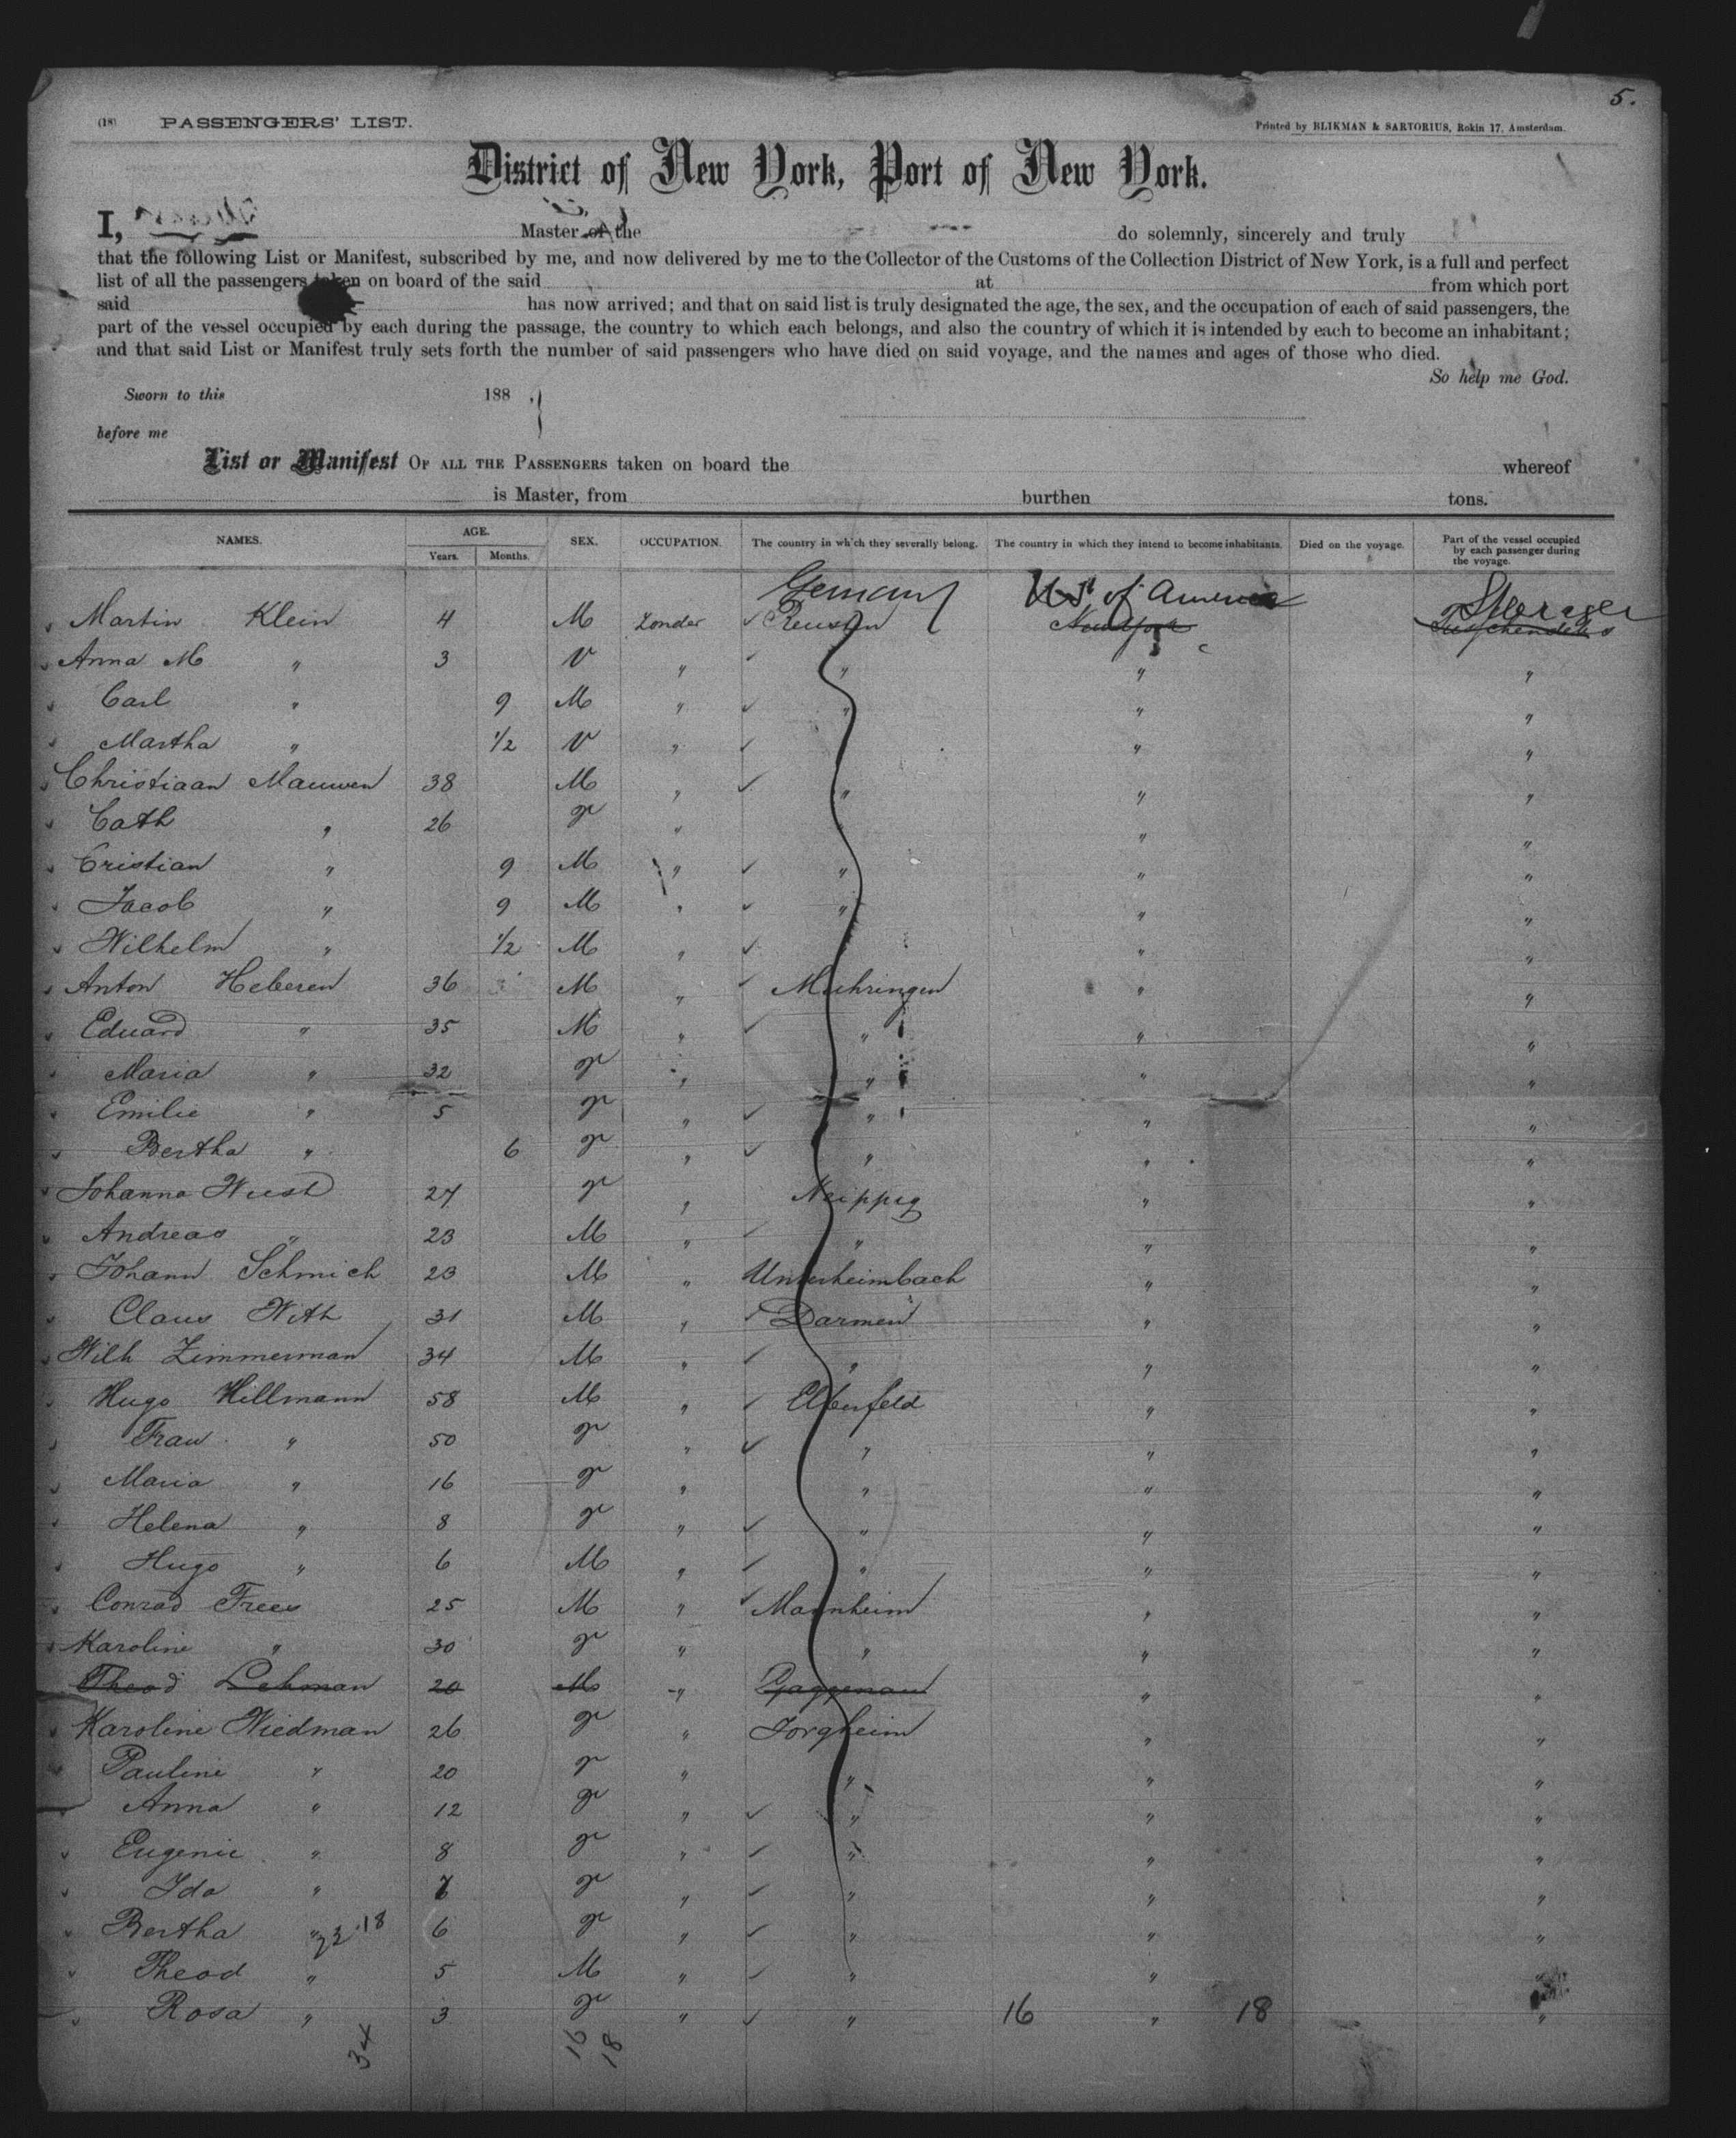 5.
(18) PASSENGERS' LIST. Printed by BLIKMAN & SARTORIUS, Rokin 17, Amsterdam.
District of New York, Port of New York.
I, Master of the do solemnly, sincerely and truly
that the following List or Manifest, subscribed by me, and now delivered by me to the Collector of the Customs of the Collection District of New York, is a full and perfect
list of all the passengers taken on board of the said at from which port
said has now arrived; and that on said list is truly designated the age, the sex, and the occupation of each of said passengers, the
part of the vessel occupied by each during the passage, the country to which each belongs, and also the country of which it is intended by each to become an inhabitant;
and that said List or Manifest truly sets forth the number of said passengers who have died on said voyage, and the names and ages of those who died.
So help me God.
Sworn to this 188 ,
before me
List or Manifest OF ALL THE PASSENGERS taken on board the whereof
is Master, from burthen tons.
NAMES. AGE. Years. Months. SEX. OCCUPATION. The country in which they severally belong. The country in which they intend to become inhabitants. Died on the voyage. Part of the vessel occupied by each passenger during the voyage.
Germany U St of America Steerage
Martin Klein 4 M Zonder Preusen
Anna M " 3 V " " " "
Carl " 9 M " " " "
Martha " 1/2 V " " "
Christiaan Mauwen 38 M " " " "
Cath " 26 F " " "
Cristian " 9 M " " " "
Jacob " 9 M " " " "
Wilhelm " 1/2 M " " "
Anton Heberen 36 M " Muhringen " "
Eduard " 35 M " " " "
Maria " 32 F " " " "
Emilie " 5 F " " " "
Bertha " 6 F " " " "
Johanna Wust 27 F " Neippeg " "
Andreas " 23 M " " " "
Johann Schmich 23 M " Unterheimbach " "
Claus With 31 M " Darmen " "
Wilh Zimmerman 34 M " " " "
Hugo Hillmann 58 M " Elberfeld " "
Frau " 50 F " " " "
Maria " 16 F " " " "
Helena " 8 F " " " "
Hugo " 6 M " " " "
Conrad Frees 25 M " Mannheim " "
Karoline " 30 F " " " "
Theod Lehman 20 M " Gaggenau " "
Karoline Wiedman 26 F " Forgheim " "
Pauline " 20 F " " " "
Anna " 12 F " " " "
Eugenie " 8 F " " " "
Ida " 7 F " " " "
Bertha " 6 F " " " "
Theod " 5 M " " " "
Rosa " 3 F " " 16 " 18 "
34 16 18